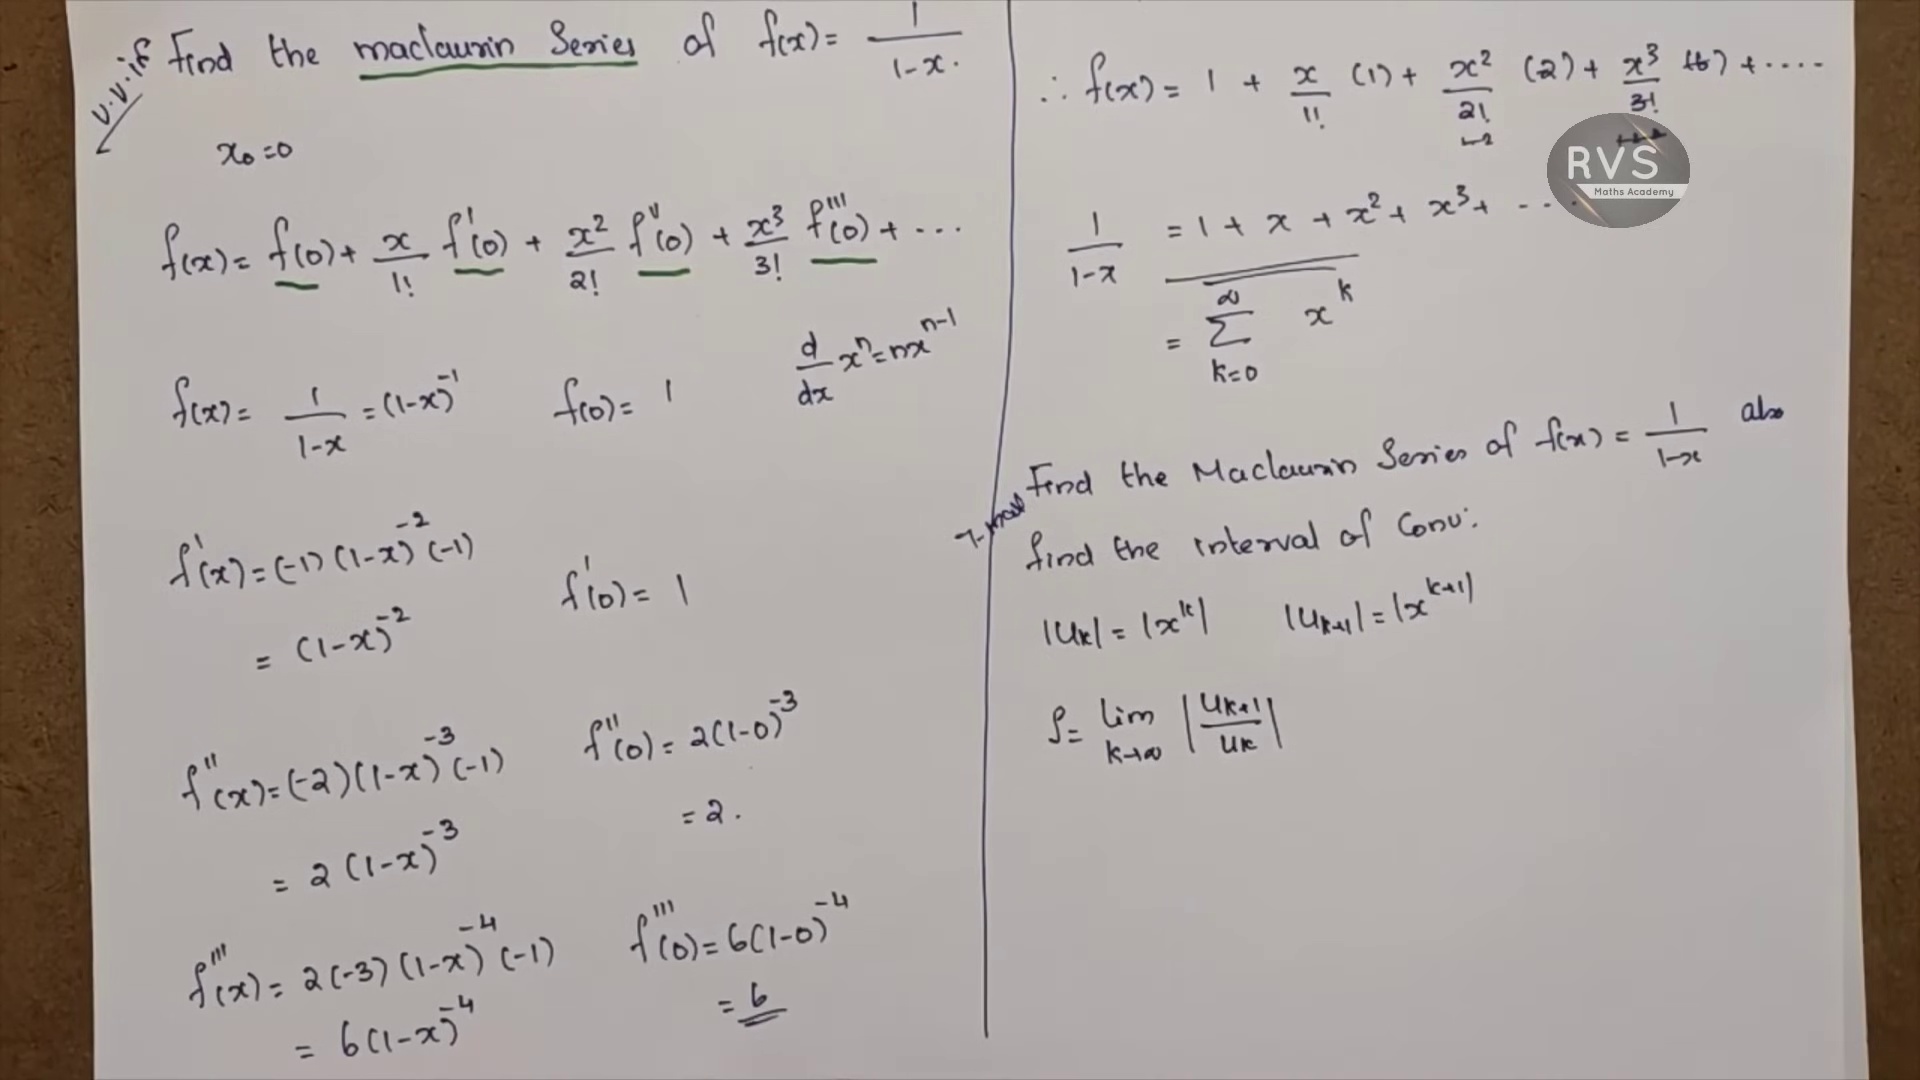 v.v.if
Find the maclaurin Series of f(x) = 1/(1-x).
x₀=0
f(x) = f(0) + x/1! f'(0) + x²/2! f''(0) + x³/3! f'''(0) + ...
d/dx xⁿ = nxⁿ⁻¹
f(x) = 1/(1-x) = (1-x)⁻¹ f(0) = 1
f'(x) = (-1)(1-x)⁻²(-1) f'(0) = 1
= (1-x)⁻²
f''(x) = (-2)(1-x)⁻³(-1) f''(0) = 2(1-0)⁻³
= 2(1-x)⁻³ = 2.
f'''(x) = 2(-3)(1-x)⁻⁴(-1) f'''(0) = 6(1-0)⁻⁴
= 6(1-x)⁻⁴ = 6
∴ f(x) = 1 + x/1! (1) + x²/2! (2) + x³/3! (6) + ....
RVS
Maths Academy
1/(1-x) = 1 + x + x² + x³ + ...
= ∑_{k=0}^{∞} x^k
Find the Maclaurin Series of f(x) = 1/(1-x) also
find the interval of Conv:
|u_k| = |x^k| |u_{k+1}| = |x^{k+1}|
ρ = lim_{k→∞} |u_{k+1}/u_k|